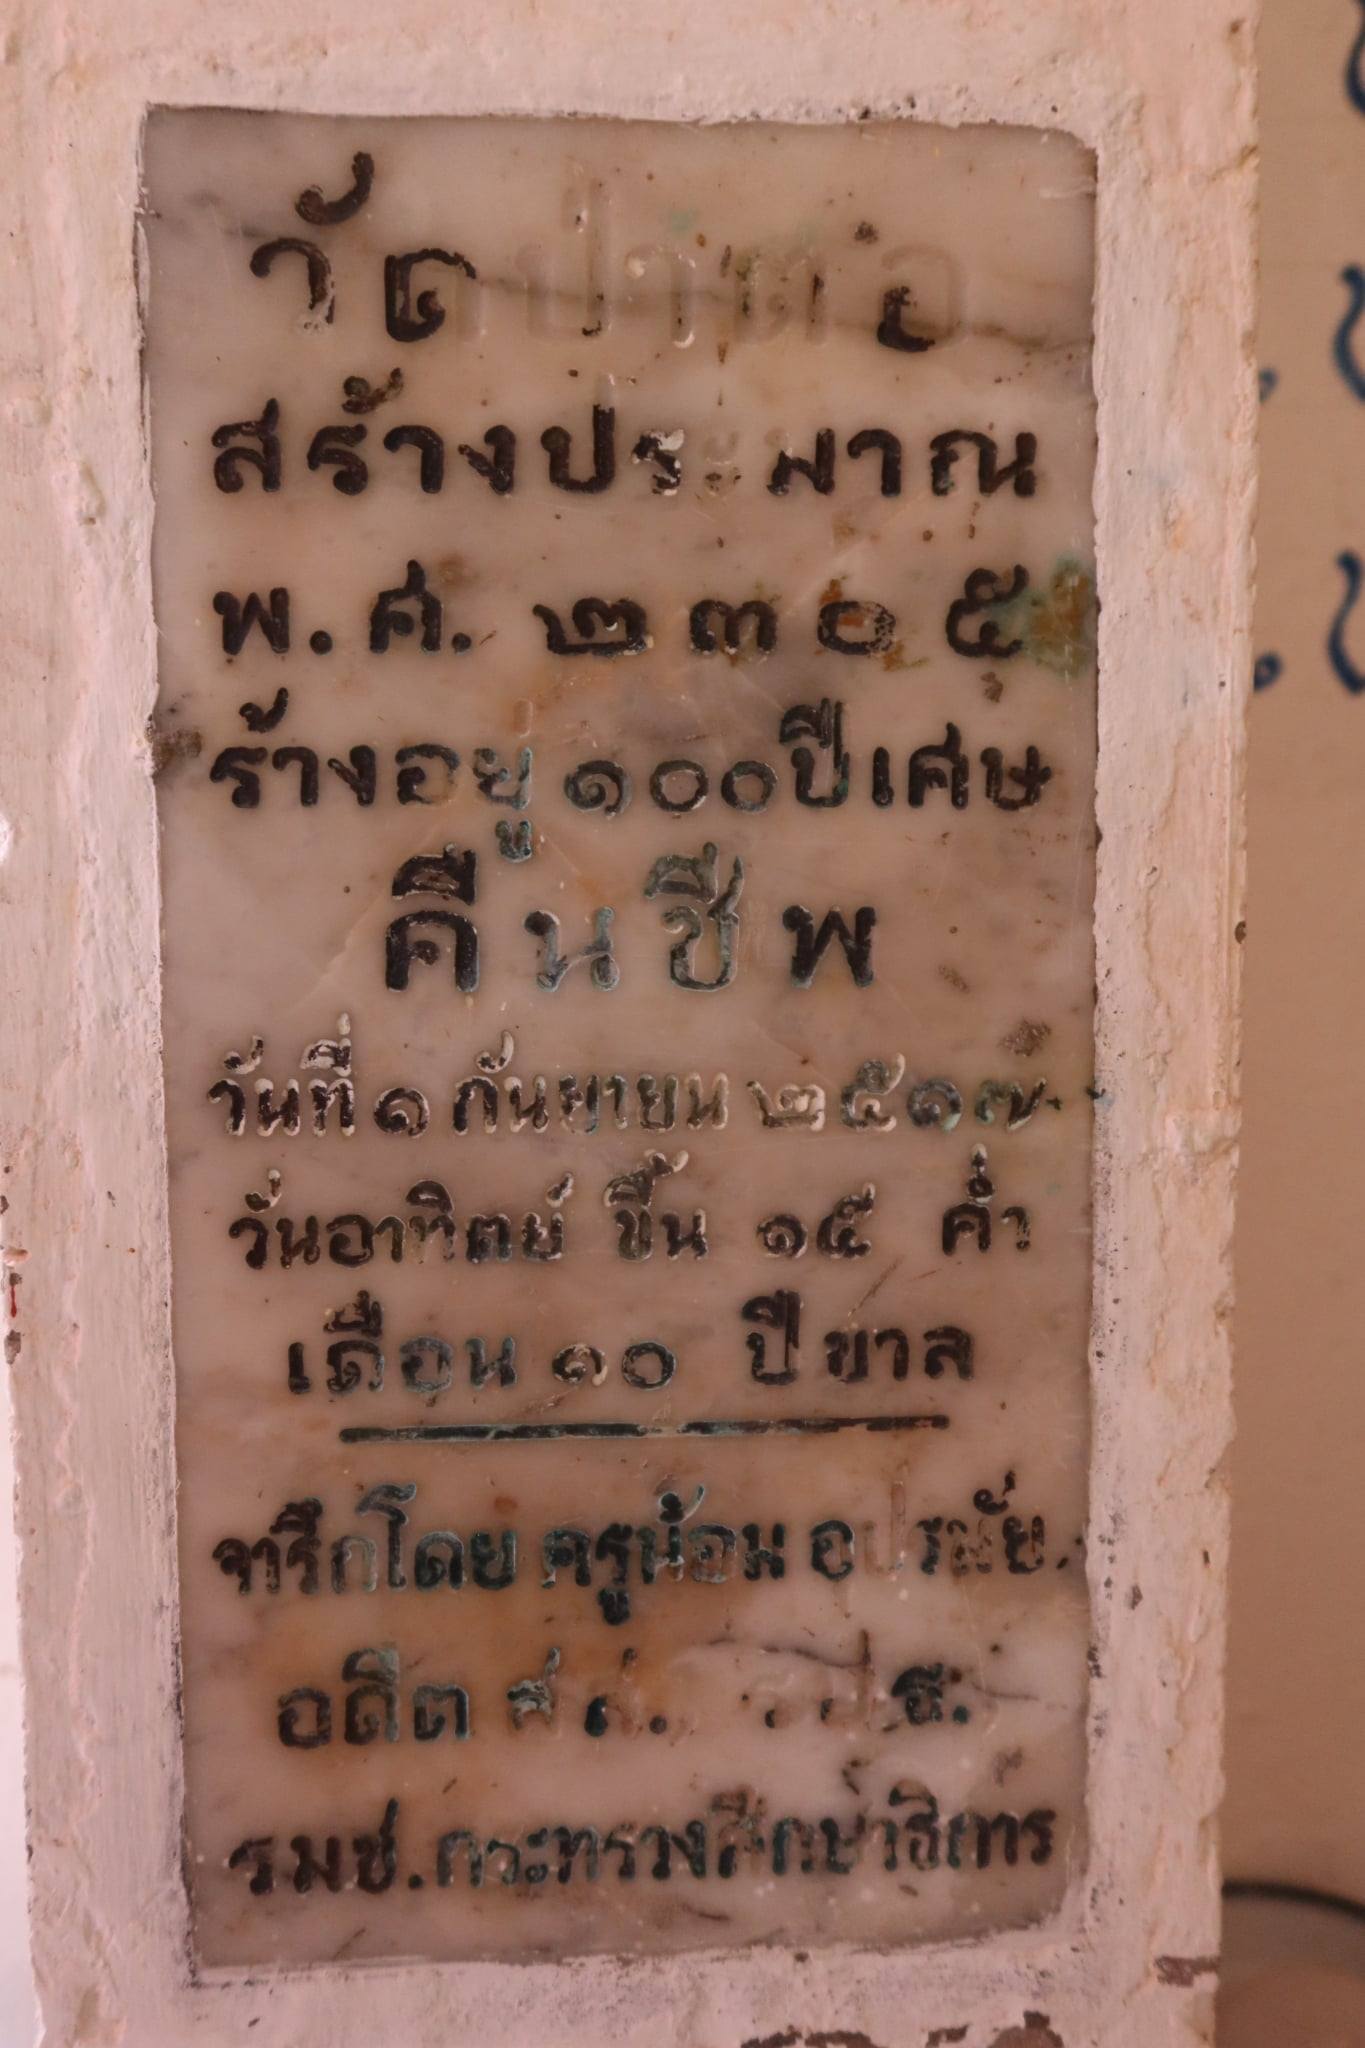 วัดป่าตอ
สร้างประมาณ
พ.ศ. ๒๓๐๕
ร้างอยู่ ๑๐๐ ปีเศษ
คืนชีพ
วันที่ ๑ กันยายน ๒๕๑๗
วันอาทิตย์ ขึ้น ๑๕ ค่ำ
เดือน ๑๐ ปีขาล
จารึกโดย ครูน้อม อุปรมัย
อดีต ส.ส. ปธ.
รมช. กระทรวงศึกษาธิการ